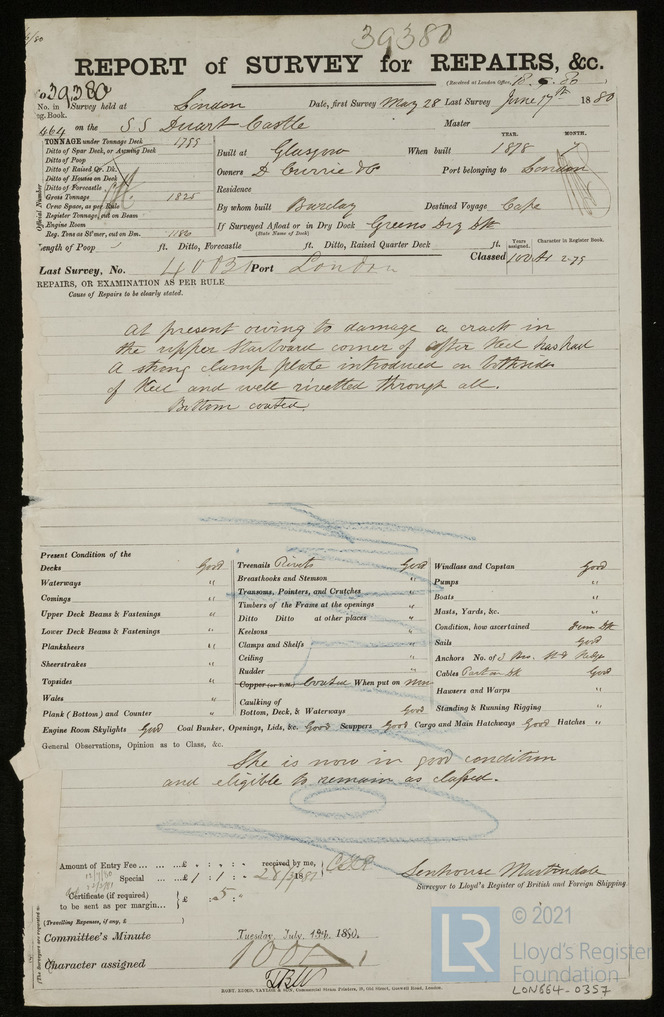 39380
REPORT of SURVEY for REPAIRS, &c.
(Received at London Office,
No. 39380
No. in Survey held at London Date, first Survey May 28 Last Survey June 17th 1880
Reg. Book.
464 on the SS Duart Castle Master
TONNAGE under Tonnage Deck 1755
Ditto of Spar Deck, or Awning Deck
Ditto of Poop
Ditto of Raised Qr. Dk.
Ditto of Houses on Deck
Ditto of Forecastle
Gross Tonnage 1825
Crew Space, as per Rule
Register Tonnage, cut on Beam
Engine Room
Reg. Tons as St'mer, cut on Bm. 1180
Official Number
YEAR. MONTH.
Built at Glasgow When built 1878
Owners D Currie & Co Port belonging to London
Residence
By whom built Barclay Destined Voyage Cape
If Surveyed Afloat or in Dry Dock Greens Dry Dk
(State Name of Dock)
Length of Poop ft. Ditto, Forecastle ft. Ditto, Raised Quarter Deck ft.
Years assigned. Character in Register Book.
Classed 100 A1 2-79
Last Survey, No. Port London
REPAIRS, OR EXAMINATION AS PER RULE
Cause of Repairs to be clearly stated.
At present owing to damage a crack in
the upper starboard corner of after Keel has had
A strong clamp plate introduced on both sides
of Keel and well rivetted through all.
Bottom coated.
Present Condition of the
Decks Good
Waterways "
Comings "
Upper Deck Beams & Fastenings "
Lower Deck Beams & Fastenings "
Planksheers "
Sheerstrakes "
Topsides "
Wales "
Plank (Bottom) and Counter "
Treenails Rivets Good
Breasthooks and Stemson "
Transoms, Pointers, and Crutches "
Timbers of the Frame at the openings "
Ditto Ditto at other places "
Keelsons "
Clamps and Shelfs "
Ceiling "
Rudder "
Copper (or Y.M.) Coated When put on now
Caulking of
Bottom, Deck, & Waterways Good
Windlass and Capstan Good
Pumps "
Boats "
Masts, Yards, &c. "
Condition, how ascertained from Dk
Sails Good
Anchors No. of 3
Cables Part on Dk Good
Hawsers and Warps "
Standing & Running Rigging "
Engine Room Skylights Good Coal Bunker, Openings, Lids, &c. Good Scuppers Good Cargo and Main Hatchways Good Hatches "
General Observations, Opinion as to Class, &c.
She is now in good condition
and eligible to remain as classed.
Amount of Entry Fee ... ... ...£ : : : received by me,
Special ... ...£ 1 : 1 :
Certificate (if required)
to be sent as per margin... £ : 5 :
(Travelling Expenses, if any, £
Senhouse Martindale
Surveyor to Lloyd's Register of British and Foreign Shipping
Committee's Minute Tuesday, July 13th 1880.
Character assigned 100A1
ROBT. EDMD. TAYLOR & SON, Commercial Steam Printers, 19, Old Street, Goswell Road, London.
LR
© 2021
Lloyd's Register
Foundation
LON664-0357